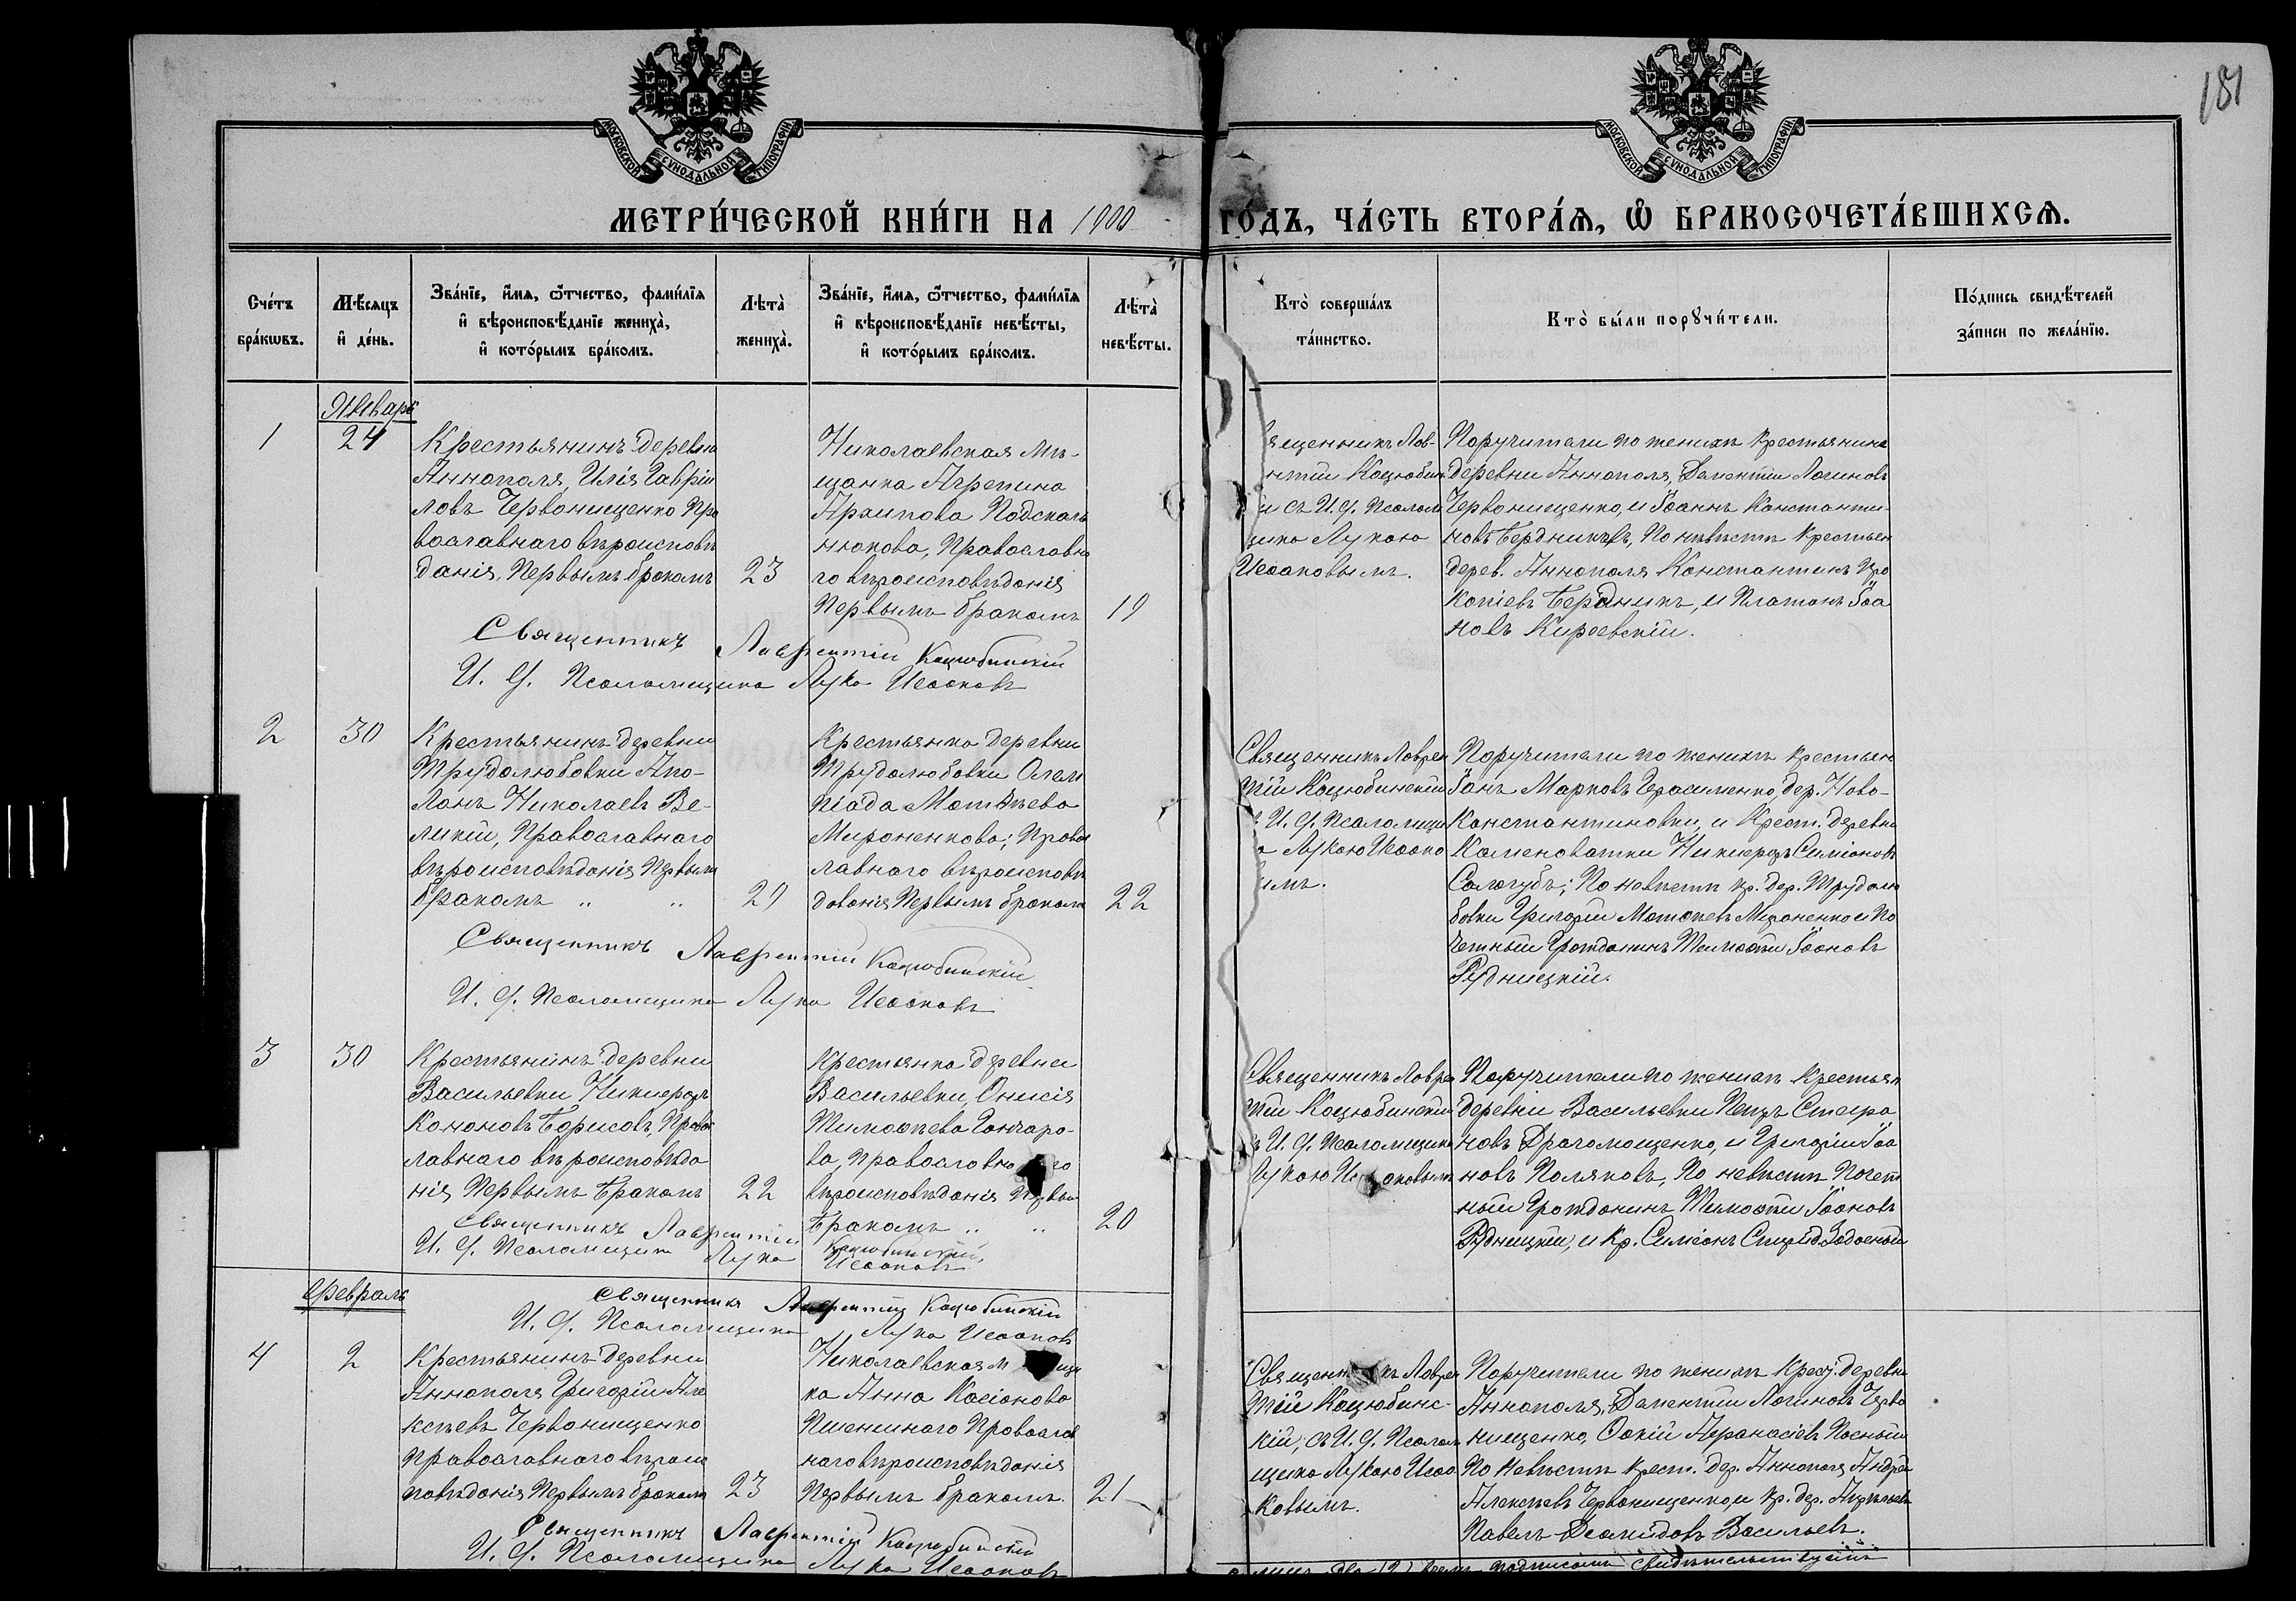 181
МОСКОВСКОЙ СѴНОДАЛЬНОЙ ТИПОГРАФІИ
МОСКОВСКОЙ СѴНОДАЛЬНОЙ ТИПОГРАФІИ
МЕТРИ́ЧЕСКОЙ КНИ́ГИ НА 1900 ГО́ДЪ, ЧА́СТЬ ВТОРА́Ѧ, Ѽ БРАКОСОЧЕТА́ВШИХСѦ.
Сче́тъ
бра́кѡвъ.
Мѣ́сяцъ
и҆ де́нь.
Зва́нїе, и҆́мя, ѻ҆́тчество, фами́лїя
и҆ вѣроисповѣ́данїе жениха̀,
и҆ кото́рымъ бра́комъ.
Лѣта̀
жениха̀.
Зва́нїе, и҆́мя, ѻ҆́тчество, фами́лїя
и҆ вѣроисповѣ́данїе невѣ́сты,
и҆ кото́рымъ бра́комъ.
Лѣта̀
невѣ́сты.
Кто̀ соверша́лъ
та́инство.
Кто̀ бы́ли порꙋчи́тели.
По́дпись свидѣ́телей
за́писи по жела́нїю.
Январь
1
24
Крестьянинъ деревни
Аннополя, Илія Гаврiи
ловъ Червонищенко Пра
вославнаго вѣроисповѣ
данія, Первымъ бракомъ
23
Николаевская мѣ-
щанка Агрепина
Архипова Подсколь
нюкова, Православна
го вѣроисповѣданія
Первымъ бракомъ
19
ященникъ Лав-
нтій Коцюбинс
и съ И. Ф. Псалом
щика Лукою
Исааковымъ.
Поручители по женихѣ крестьянинъ
деревни Аннополя, Дементій Логиновъ
Червонищенко, и Іоаннъ Константи-
новъ Бердникъ, По невѣстѣ Крестьян
дерев. Аннополя Константинъ Про
копіевъ Бердникъ, и Платонъ Іоа
новъ Киреевскій.
Священникъ Лаврентій Коцюбинскій
И. Ф. Псаломщика Лука Исааковъ
2
30
Крестьянинъ деревни
Трудолюбовки Апо-
лонъ Николаевъ Ве-
ликій, Православнаго
вѣроисповѣданія Первымъ
бракомъ „ „
29
Крестьянка деревни
Трудолюбовки Олем
піада Матвѣева
Мироненкова; Правос
лавнаго вѣроисповѣ
дованія Первымъ бракомъ
22
Священникъ Лаврен
тій Коцюбинскій
ъ И. Ф. Псаломщи
а Лукою Исаако
ымъ.
Поручители по женихѣ крестьян
Іоанъ Марковъ Герасименко, дер. Ново-
Константиновки, и Крест. деревни
Каменоватки Никифоръ Симіоновъ
Сологубъ; По невѣстѣ кр. дер. Трудолю
бовки Григорій Матвѣевъ Мироненко и По
четный Гражданинъ Тимоѳтй Іоановъ
Рудницкій.
Священникъ Лаврентій Коцюбинскій
И. Ф. Псаломщика Лука Исааковъ
3
30
Крестьянинъ деревни
Васильевки Никифоръ
Кононовъ Борисовъ, Правос
лавнаго вѣроисповѣда
нія Первымъ Бракомъ
22
Крестьянка деревни
Васильевки, Онисія
Тимоѳѣева Гончаро-
ва, Православна го
вѣроисповѣданія Первы
Бракомъ „ „
20
Священникъ Лаврен
тій Коцюбинскій
ъ И. Ф. Псаломщика
Лукою И аковымъ
Поручители по женихѣ Крестьян
деревни Васильевки Петръ Стефа
новъ Драгомощенко, и Григорій Іоа
новъ Поляковъ, По невѣстѣ, Почет
ный Гражданинъ Тимоѳтй Іоановъ
Рудницкій, и Кр. Симіонъ Спирид. Задоеный
Священникъ Лаврентій Коцюбинскій
И. Ф. Псаломщика Лука Исааковъ
Священникъ Лаврентій Коцюбинскій
И. Ф. Псаломщика Лука Исааковъ
Февраль
4
2
Крестьянинъ деревни
Аннополя Григорій Але
ксѣевъ Червонищенко
православнаго вѣроис
повѣданія Первымъ бракомъ
23
Николаевская м щан
ка Анна Касіонова
Пшеничного Православ
наго вѣроисповѣданія
Первымъ бракомъ.
21
Священн къ Лаврен
тій Коцюбинс-
кій, съ И. Ф. Псалом
щика Лукою Исаа
ковымъ.
Поручители по женихѣ Крест. деревни
Аннополя, Дементій Логиновъ Черво
нищенко, Оокій Аѳанасіевъ Посный
По невѣстѣ крест. дер. Аннополя Андрей
Алексѣевъ Червонищенко, и кр. дер.
Павелъ Деомидовъ Васильевъ.
Священникъ Лаврентій Коцюбинскій
И. Ф. Псаломщика Лука Исааковъ